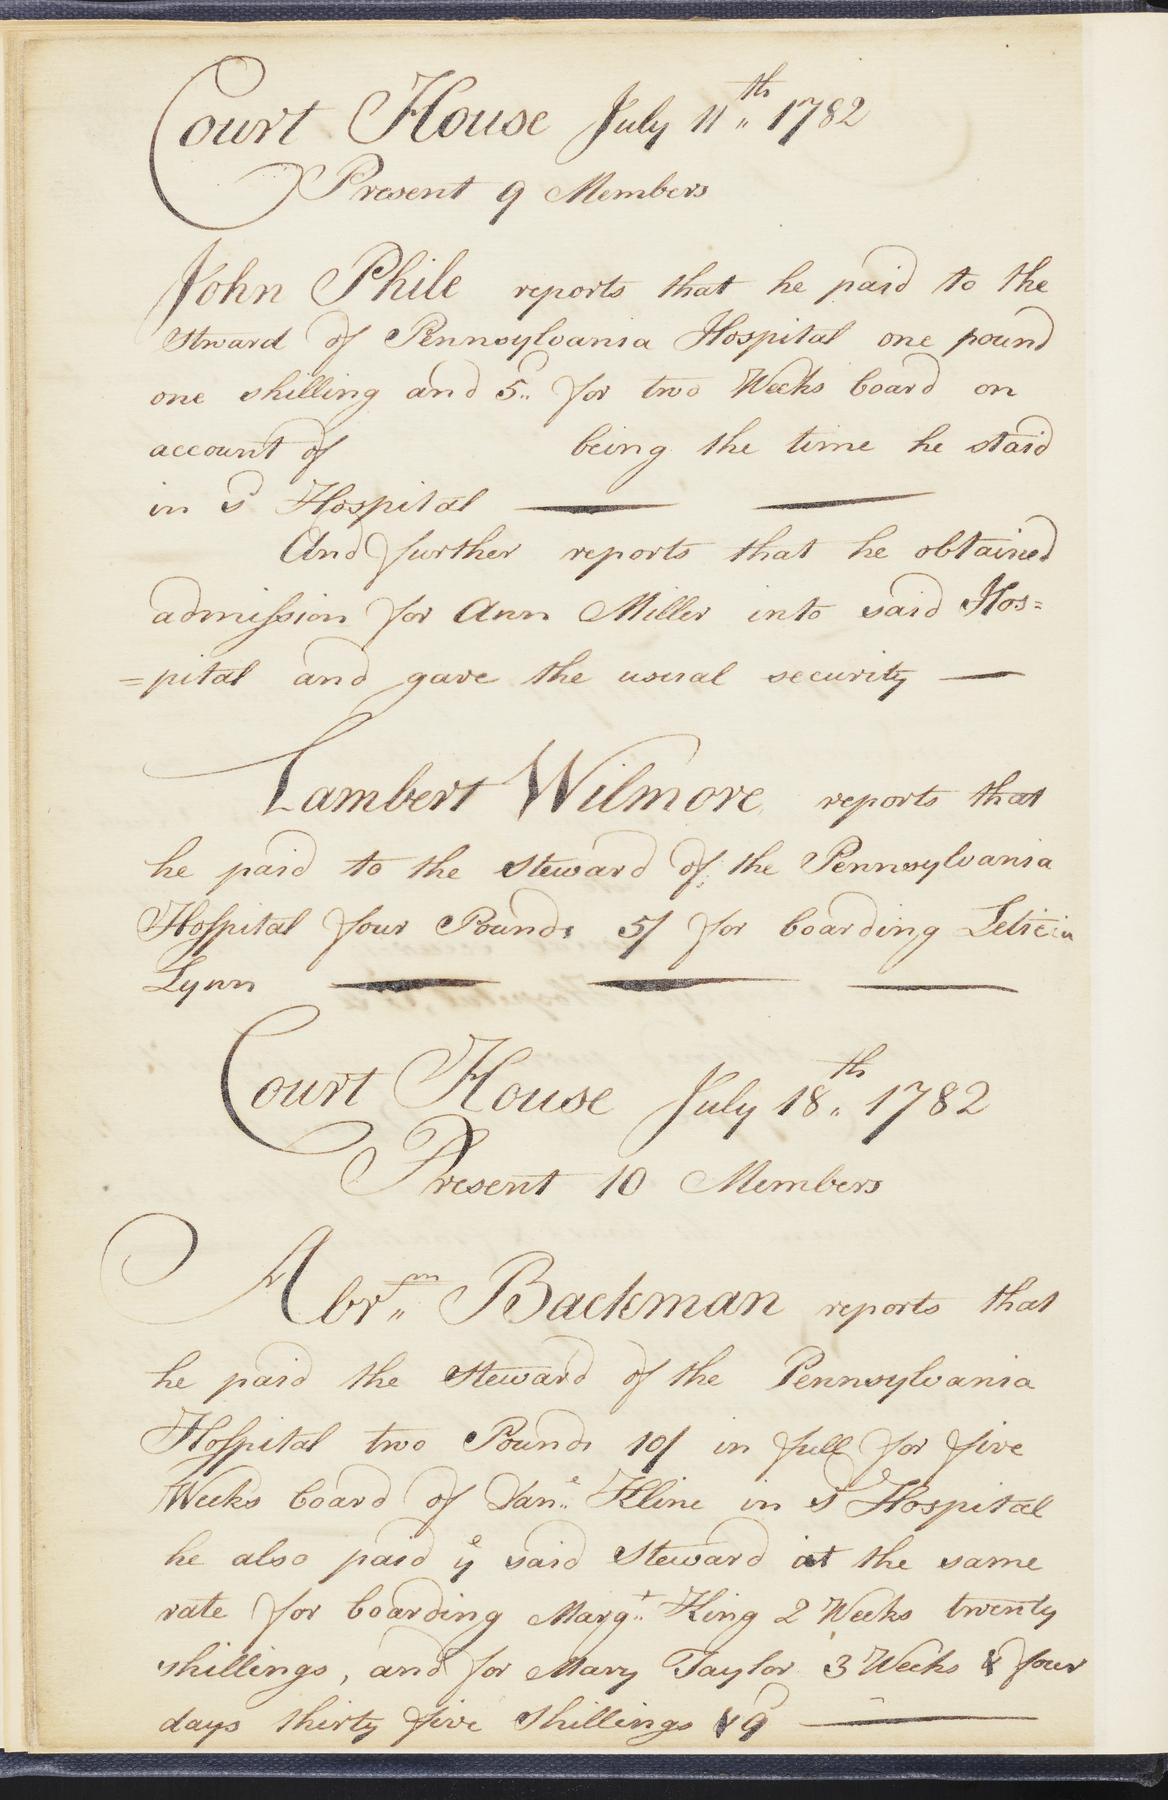 Court House July 11th 1782
Present 9 Members
John Phile reports that he paid to the
Steward of Pennsylvania Hospital one pound
one shilling and 5d for two Weeks board on
account of being the time he staid
in sd Hospital
And further reports that he obtained
admission for Ann Miller into said Hos=
=pital and gave the usual security
Lambert Wilmore reports that
he paid to the Steward of the Pennsylvania
Hospital four Pounds 5/ for boarding Leticia
Lynn
Court House July 18th 1782
Present 10 Members
Abrm Backman reports that
he paid the Steward of the Pennsylvania
Hospital two Pounds 10/ in full for five
Weeks board of Kline in sd Hospital
he also paid ye said Steward at the same
rate for boarding Margt King 2 Weeks twenty
shillings, and for Mary Taylor 3 Weeks & four
days thirty five Shillings & 9d